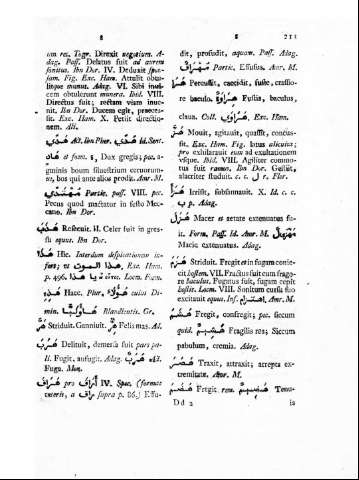 8
8
211
um rec. Togr. Direxit negotium. A-
dag. Pass. Delatus fuit ad aurem
sonitus. Ibn Dor. IV. Deduxit spon-
sam. Fig. Exc. Ham. Attulit obtu-
litque munus. Adag. VI. Sibi invi-
cem obtulerunt munera. Ibid. VIII.
Directus fuit; rectam viam inve-
nit. Ibn Dor. Ducem egit, praeces-
sit. Exc. Ham. X. Petiit directio-
nem. Ali.
هدي Act. Ibn Pher. هدى Id. Sent.
هاد et fœm. s, Dux gregis; pec. a-
gminis boum silvestrium cervorum-
ve, bos qui ante alios prodit. Amr. M.
مهتدي Partic. pass. VIII. pec.
Pecus quod mactatur in festo Mec-
cano. Ibn Dor.
هذب Resecuit. II. Celer fuit in gres-
su equus. Ibn Dor.
هذا Hic. Interdum disputationum in-
fert; ut هذا الموت Exc. Ham.
p. 496. هذا يا sive. Locm. Fam.
هذه Haec. Plur. هولاء cuius Di-
min. هاوليا Blandientis. Gr.
هر Striduit. Gannuit. هر Felis mas. Ad.
هرب Delituit, demersus fuit pars pa-
li. Fugit, aufugit. Adag. هرب Act.
Fuga. Mon.
هراق pro أراق IV. Spec. (formae
caeteris, a راق supra p. 86.) Effu-
dit, profudit, aquam. Pass. Adag.
مهراق Partic. Effusus. Amr. M.
هرا Percussit, caecidit, fuste, crassio-
re baculo. هراوة Fustis, baculus,
clava. Coll. هراوي Exc. Ham.
هز Movit, agitavit, quassit, concus-
sit. Exc. Ham. Fig. latus alicuius;
pro exhilaravit eum ad exultationem
usque. Ibid. VIII. Agiliter commo-
tus fuit ramus. Ibn Dor. Gestiit,
alaciter studuit. c. ل r. Flor.
هزا Irrisit, subsannavit. X. Id. c. c.
ب p. Adag.
هزل Macer et aetate extenuatus fu-
it. Form. Pass. Id. Amr. M. مهزول
Macie extenuatus. Adag.
هزم Striduit. Fregit et in fugam conie-
cit hostem. VII. Fractus fuit cum frago-
re baculus. Fugatus fuit, fugam cepit
hostis. Locm. VIII. Sonitum cursu suo
excitavit equus. Inf. اهتزام. Amr. M.
هشم Fregit, confregit; pec. siccum
quid. هشيم Fragilis res; Siccum
pabulum, cremia. Adag.
هصر Traxit, attraxit; arrepta ex-
tremitate. Amr. M.
هضم Fregit rem. هضيم Tenu-
Dd 2
is